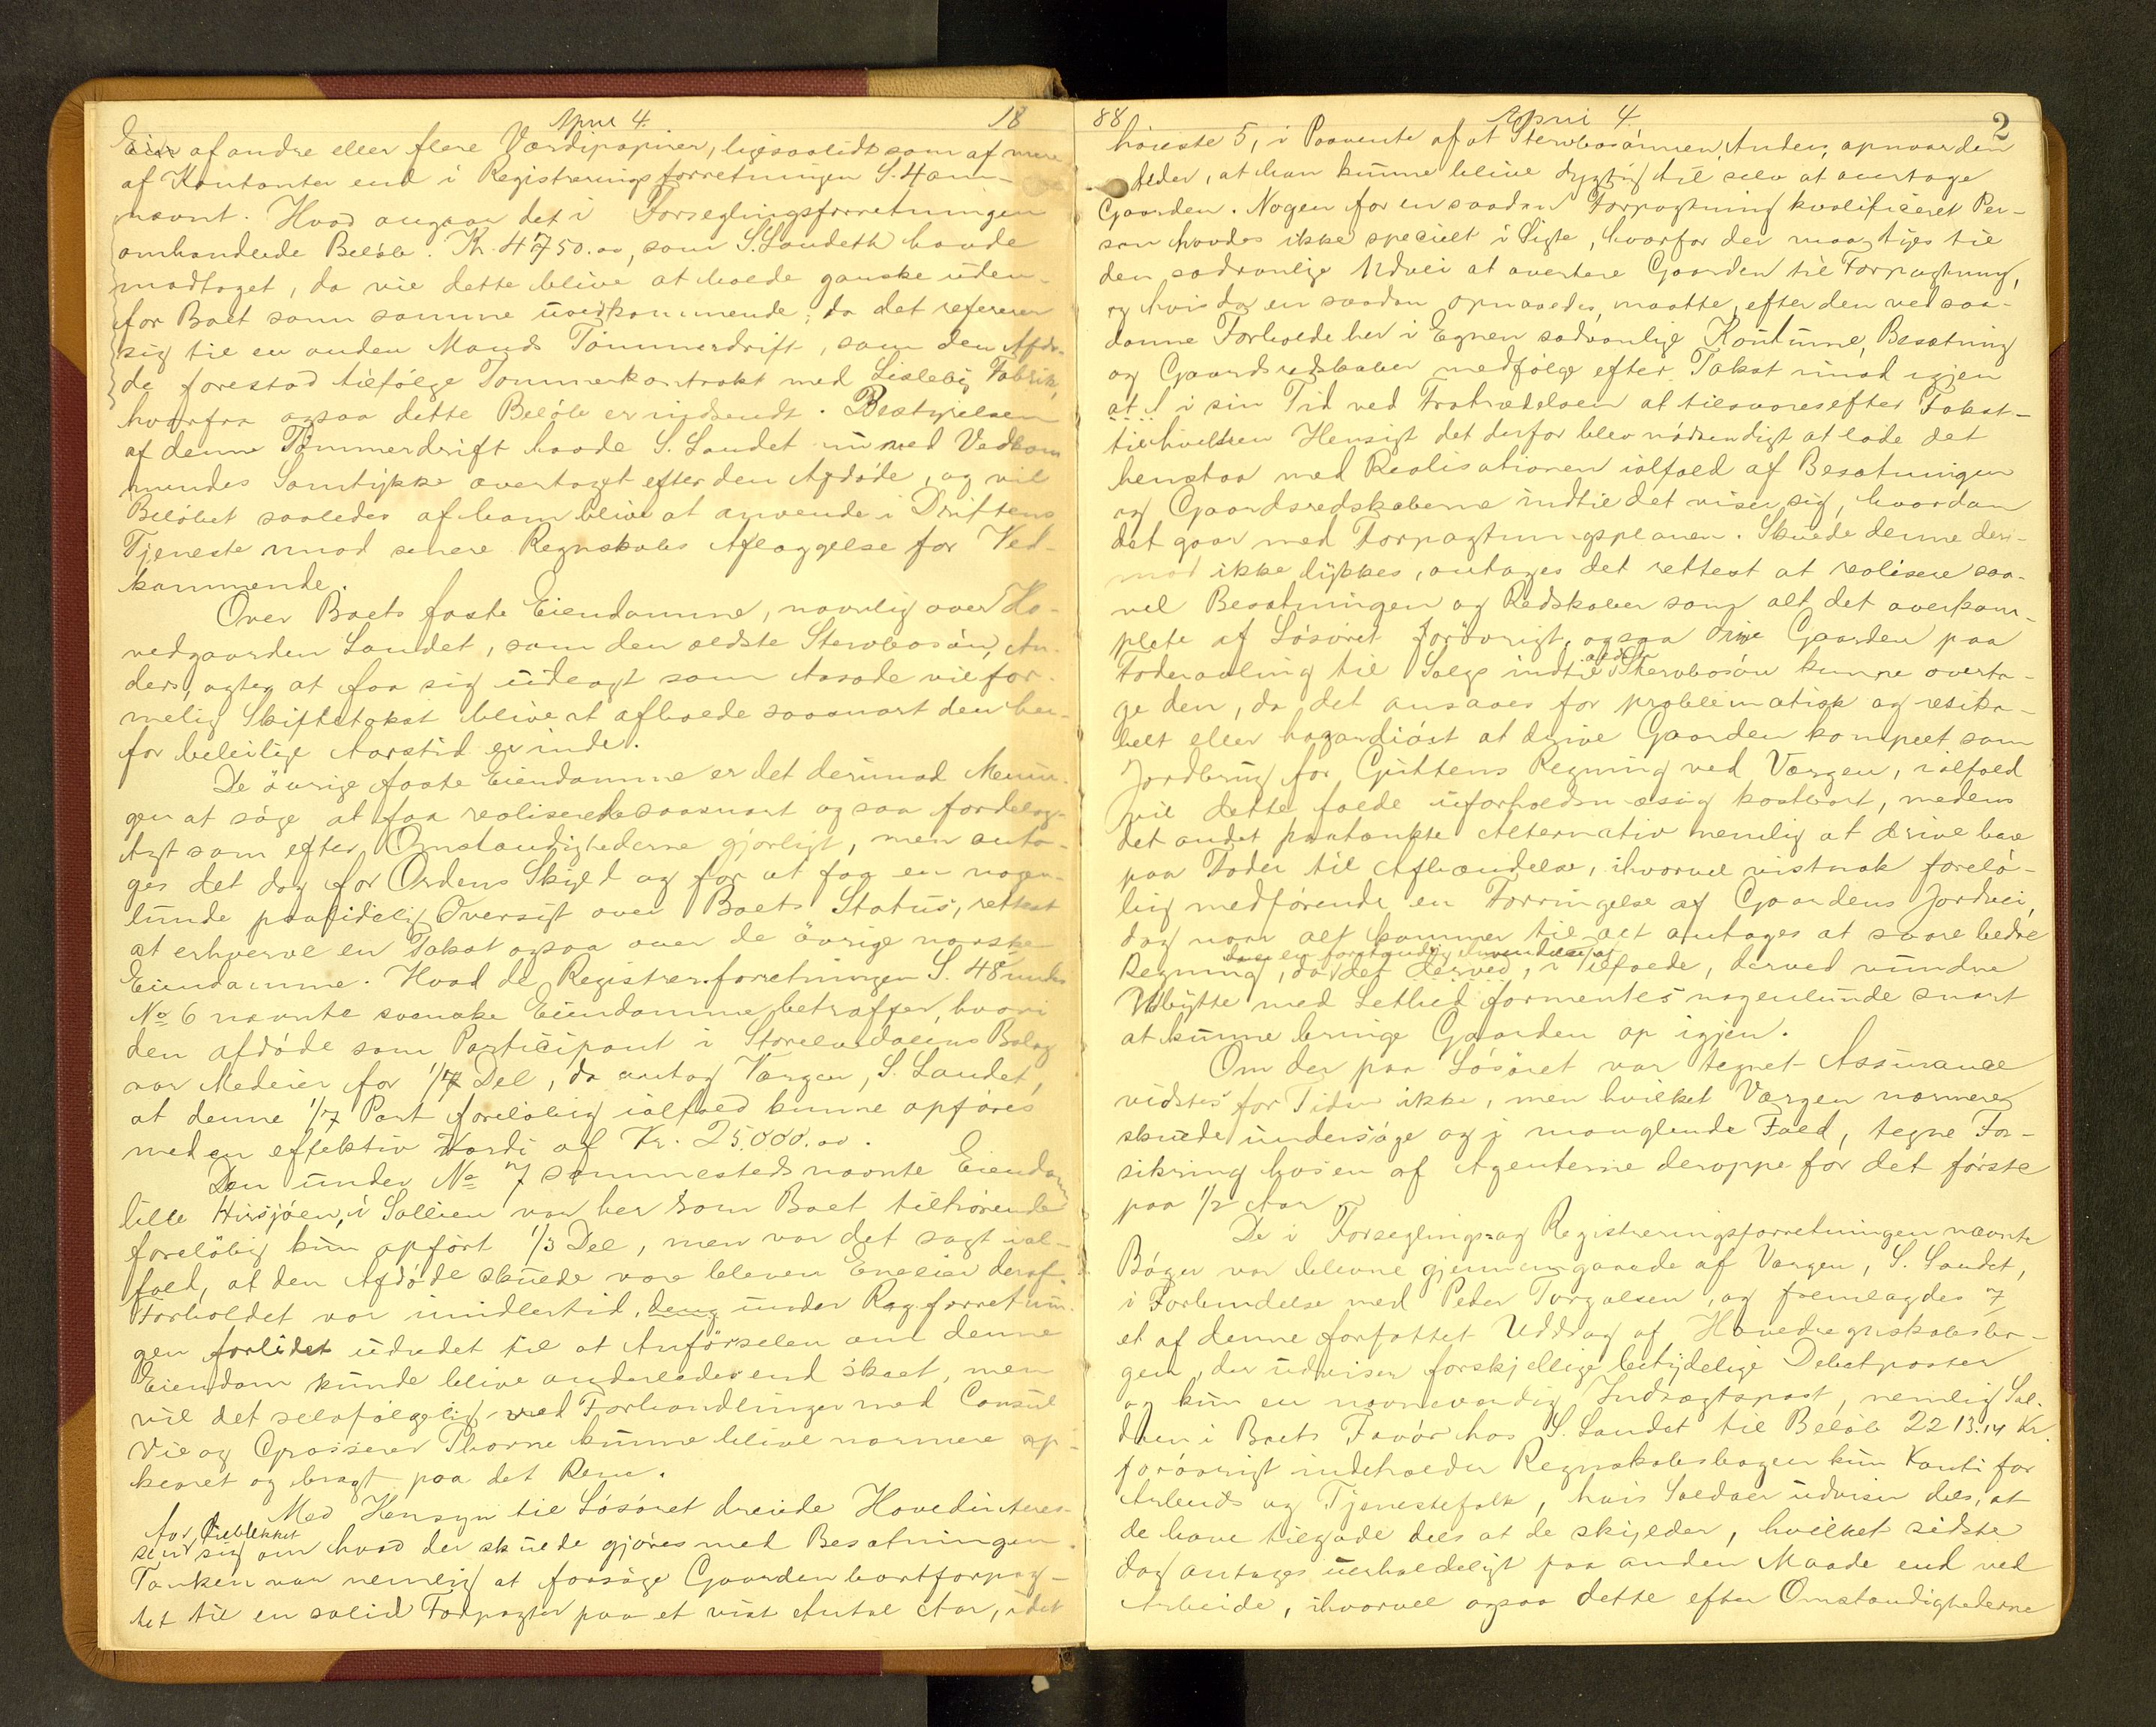 April 4. 18
Eier af andre eller flere Værdipapirer, ligesaalidt som af mere
af Kontanter end i Registreringsforretningen S. 4 om-
nævnt. Hvad angaar det i Forseglingsforretningen
omhandlede Beløb. Kr. 4750.00, som S. Landeth havde
modtaget, da vil dette blive at holde ganske uden-
for Boet som samme uvedkommende, da det referer
sig til en anden Mands Tømmerdrift, som den Afdø-
de forestod tilfølge Tømmerkontrakt med Lisleby Fabrik,
hvorfra ogsaa dette Beløb er indsendt. Bestyrelsen
af denne Tømmerdrift havde S. Landet nu med Vedkom
mendes Samtykke overtaget efter den Afdøde, og vil
Beløbet saaledes af ham blive at anvende i Driftens
Tjeneste mod senere Regnskabs Aflæggelse for Ved-
kommende.
Over Boets faste Eiendomme, navnlig over Ho-
vedgaarden Landet, som den ældste Stervbosøn, An-
ders, agter at faa sig udlagt som Aasæde vil for-
melig Skiftetakst blive at afholde saasnart den her-
for beleilige Aarstid er inde.
De øvrige faste Eiendomme er det derimod Menin-
gen at søge at faa realiserede saasnart og saa fordelag-
tigt som efter Omstændighederne gjørligt, men anta-
ges det dog for Ordens Skyld og for at faa en nogen-
lunde paalidelig Oversigt over Boets Status, rettest
at erhverve en Takst ogsaa over de øvrige norske
Eiendomme. Hvad de Registrer.forretningen S. 48 under
No 6 nævnte svenske Eiendomme betræffer, hvori
den afdøde som Participant i Storelvdalens Bolag
var Medeier for 1/7 Del, da antog Værgen, S. Landet,
at denne 1/7 Part foreløbig ialfald kunne opføres
med en effektiv Værdi af Kr. 25.000.00.
Den under No 7 sammesteds nævnte Eiendom
lille Hirsjøen, i Sollien var her som Boet tilhørende
foreløbig kun opført 1/3 Del, men var det sagt ial-
fald, at den Afdøde skulde være bleven Eneeier deraf.
Forholdet var imidlertid, deng under Reg.forretnin-
gen forlidet udredet til at Anførselen om denne
Eiendom kunde blive anderledes end skeet, men
vil det selvfølgelig ved Forhandlinger med Consul
Vie og Grosserer Thorne kunne blive nærmere op-
klaret og bragt paa det Rene.
Med Hensyn til Løsøret dreiede Hovedinteres-
for Øieblikket
sen sig om hvad der skulde gjøres med Besætningen.
Tanken var nemlig at forsøge Gaarden bortforpag-
tet til en solid Forpagter paa et vist Antal Aar, idet
88 April 4 2
høieste 5, i Paavente af at Stervbosønnen, Anders, opnaar den
Alder, at han kunne blive dygtig til selv at overtage
Gaarden. Nogen for en saadan Forpagtning kvalificeret Per-
son havdes ikke specielt i Sigte, hvorfor der maa tyes til
den sædvanlige Udvei at avertere Gaarden til Forpagtning,
og hvis da en saadan opnaaedes, maatte, efter den ved saa-
danne Forholde her i Egnen sædvanlige Koutume, Besætning
og Gaardsredskaber medfølge efter Takst imod igjen
at i sin Tid ved Fratrædelsen at tilsvares efter Takst-
til hvilken Hensigt det derfor blev nødvendigt at lade det
henstaa med Realisationen ialfald af Besætningen
og Gaardsredskaberne indtil det viser sig, hvordan
det gaar med Forpagtningsplanen. Skulde denne deri-
mod ikke lykkes, antages det rettest at realisere saa-
vel Besætningen og Redskaber som alt det overkom-
plete af Løsøret forøvrigt, ogsaa drive Gaarden paa
Foderavling til Salgs indtil Stervbosøn kunne overta-
ge den, da det ansaaes for problematisk og resika-
belt eller hazardiøst at drive Gaarden komplet som
Jordbrug for Guttens Regning ved Værgen, ialfald
vil dette falde uforholdsmæsig kostbart, medens
det andet paatænkte Alternativ nemlig at drive bare
paa Foder til Afhændelse, ihvorvel vistnok forelø-
big medførende en Forringelse af Gaardens Jordvei,
dog naar alt kommer til alt antages at svare bedre
Regning, da det derved, i Tilfælde, derved vundne
Udbytte med Lethed formentes nogenlunde snart
at kunne bringe Gaarden op igjen.
Om der paa Løsøret var tegnet Assurance
vidstes for Tiden ikke, men hvilket Værgen nærmere
skulde undersøge og i manglende Fald, tegne For-
sikring hos en af Agenterne deroppe for det første
paa 1/2 Aar.
De i Forseglings- og Registreringsforretningen nævnte
Bøger var blevne gjennemgaaede af Værgen, S. Landet,
i Forbindelse med Peder Torgalsen, og fremlagdes 7
et af denne forfattet Uddrag af Hovedregnskabsbo-
gen, der udviser forskjellige betydelige Debetposter
og kun en nævneværdig Indtægtspost, nemlig Sal-
doen i Boets Favør hos S. Landet til Beløb 2213.14 Kr.
forøvrigt indeholder Regnskabsbogen kun Konti for
Arbeids og Tjenestefolk, hvis Saldoer udviser dels, at
de have tilgode dels at de skylder, hvilket sidste
dog antages uerholdeligt paa anden Maade end ved
Arbeide, ihvorvel ogsaa dette efter Omstændighederne